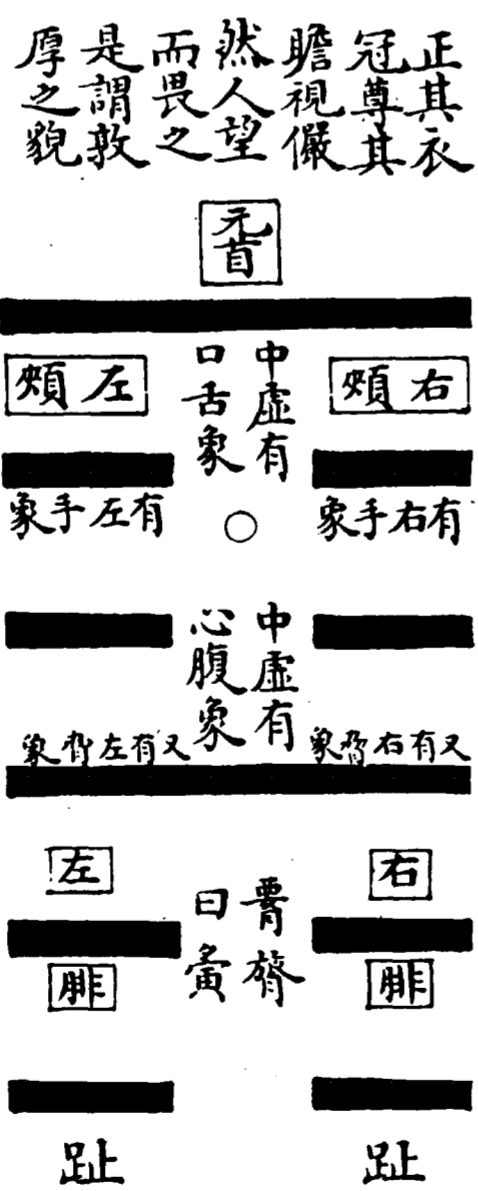 正其衣
冠尊其
瞻視儼
然人望
而畏之
是謂敦
厚之貌
元首
右頰
左頰
中虛有
口舌象
有右手象
有左手象
中虛有
心腹象
又有右象
又有左象
右
左
腰膂
曰夤
腓
腓
趾
趾